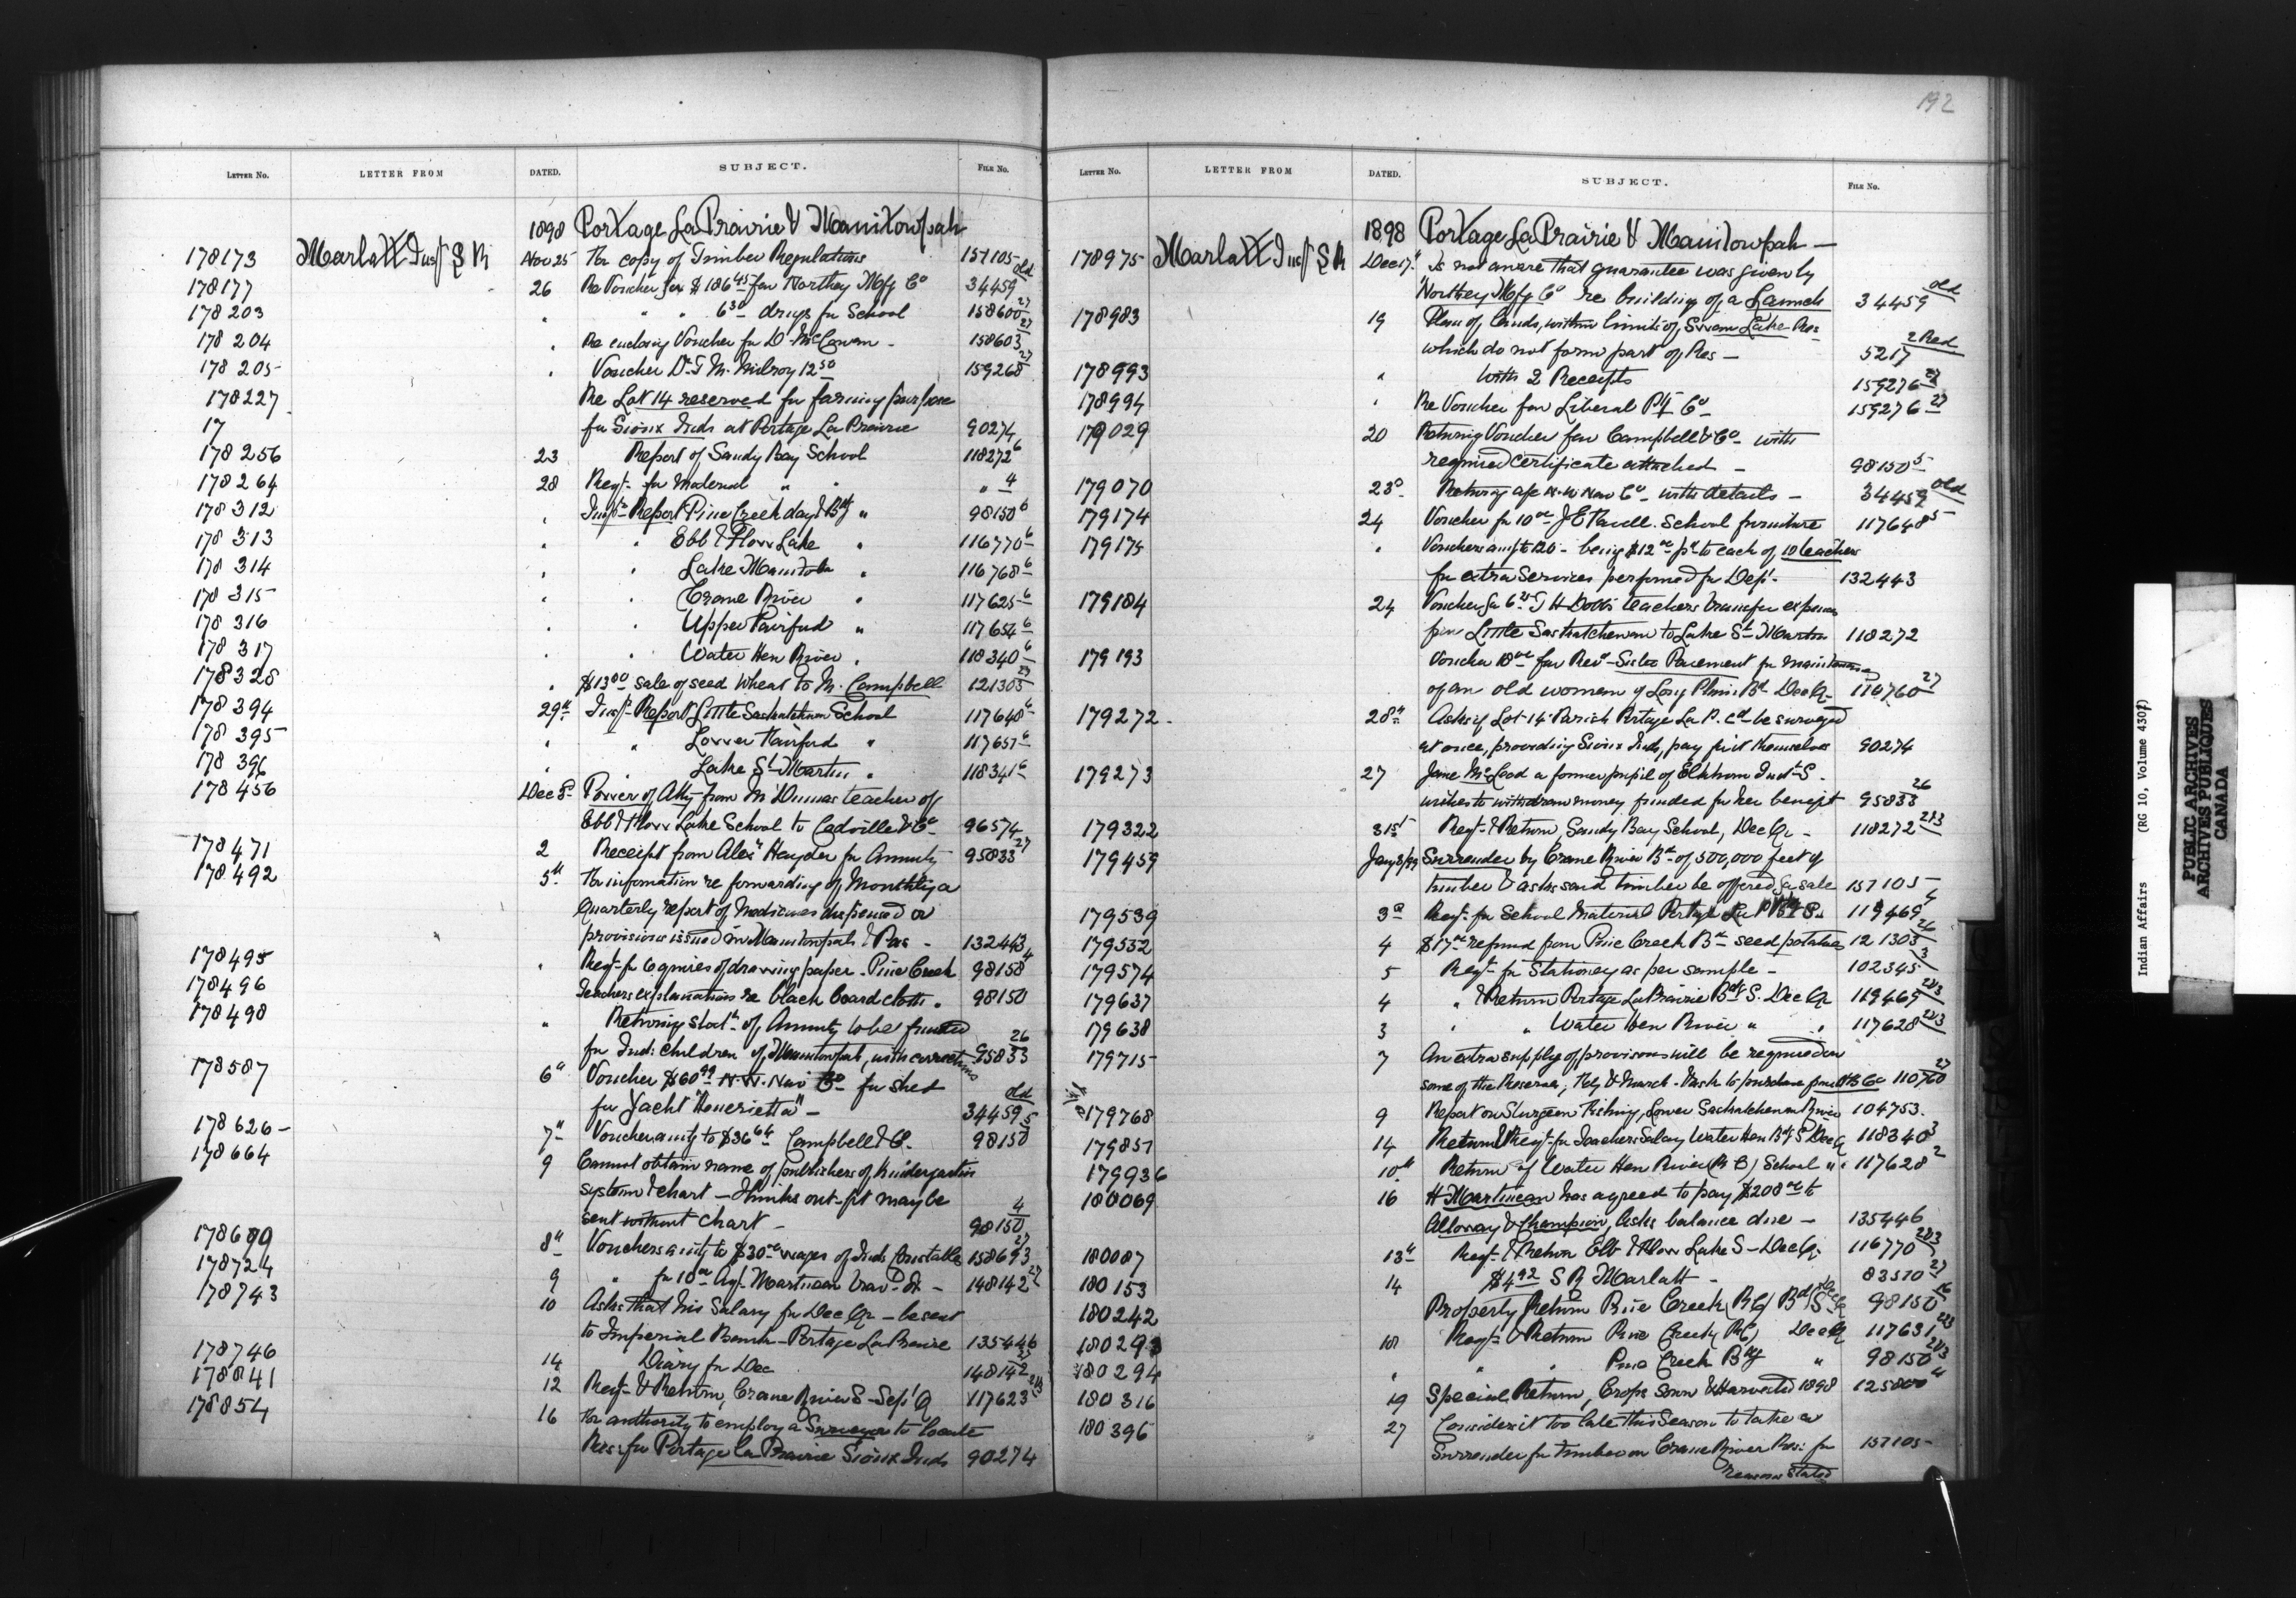 192
LETTER NO. LETTER FROM DATED. SUBJECT. FILE NO.
1898 Portage La Prairie & Manitowpah
178173 Marlatt Insp S R Nov 25 For copy of Timber Regulations 157105
178177 26 Re Voucher for $186 45 fav Northey Mfg Co 34459 old
178203 " " " 6 30 drugs for School 158600 27
178204 " Re enclosing Voucher for D McCowan - 158603 27
178205 " Voucher Dr T M Milroy 12 50 159268 27
178227 Re Lot 14 reserved for farming purpose
17 for Sioux Inds at Portage La Prairie 90274
178256 23 Report of Sandy Bay School 118272 6
178264 28 Reqt for Material " " " 4
178312 " Insp's Report Pine Creek day & Bdg " 98150 6
178313 " " Ebb & Flow Lake " 116770 6
178314 " " Lake Manitoba " 116768 6
178315 " " Crane River " 117625 6
178316 " " Upper Fairford " 117654 6
178317 " " Water Hen River " 118340 6
178328 " $13 00 sale of seed Wheat to M. Campbell 121305 27
178394 29th Insp Report Little Saskatchewan School 117648 6
178395 " " Lower Fairford " 117657 6
178396 " " Lake St Martin " 118341 6
178456 Dec Power of Atty from Mr Dumas teacher of
Ebb & Flow Lake School to Cadville & Co 96574
178471 2 Receipt from Alexr Hayden for Annuity 95833 27
178492 5th For information re forwarding of Monthly a
Quarterly report of Medicines dispensed or
provisions issued in Manitowpah & Pas - 132443
178495 " Reqt for 6 quires of drawing paper - Pine Creek 98150 4
178496 Teachers explanations re black board cloth " 98150
178498 " Returning Statt of Annuity to be funded
for Ind: children of Manitowpah, with corrections 95833 26
178587 6th Voucher $60 99 N.W. Nav Co for shed
for Yacht "Henrietta" - 34459 old
178626 - 7th Voucher amtg to $36 64 Campbell & Co. 98150 5
178664 9 Cannot obtain name of publishers of Kindergarten
system & chart - thinks out-fit may be
sent without chart - 98150 4
178680 8th Vouchers amtg to $30 00 wages of Inds Constables 158693 27
178724 9 " for 10 00 Agt Martineau trav 148142 27
178743 10 Asks that his Salary for Dec Qr - be sent
to Imperial Bank - Portage La Prairie 135446
178746 14 Diary for Dec 148142 27
178841 12 Reqt & Return, Crane River S - Sept Q 117623 2&3
178854 16 For authority to employ a Surveyor to locate
Res: for Portage La Prairie Sioux Inds 90274
LETTER NO. LETTER FROM DATED. SUBJECT. FILE NO.
1898 Portage La Prairie & Manitowpah -
178975 Marlatt Insp S R Dec 17th Is not aware that guarantee was given by
Northey Mfg Co re building of a Launch 34459 old
178983 19 Plan of lands, within limits of Swan Lake Res:
which do not form part of Res - 5217 2 Red
178993 " With 2 Receipts 159276 27
178994 " Re Voucher fav Liberal Ptg Co - 159276 27
179029 20 Returning Voucher fav Campbell & Co - with
required certificate attached - 98150 5
179070 23d Returning a/c N.W Nav Co - with details - 34459 old
179174 24 Voucher for 10 00 J E School furniture 117648 5
179175 " Vouchers amtg to 120 - being $12 00 pd to each of 10 teachers
for extra Services performed for Dept - 132443
179184 24 Voucher for T H Dobbs teachers transfer expenses
from Little Saskatchewan to Lake St Martin 118272
179193 Voucher 18 00 fav Revd Sister for maintenance
of an old woman of Long Plain Bd Dec Qr 110760 27
179272 - 28th Asks if Lot 14 Parish Portage La P. cd be surveyed
at once, providing Sioux Inds, pay for it themselves 90274
179273 27 Jane McLeod a former pupil of Elkhorn Indl S.
wishes to withdraw money funded for her benefit 95833 26
179322 31st Reqt & Return, Sandy Bay School, Dec Qr - 118272 2&3
179459 Jany 3/99 Surrender by Crane River Bd - of 500,000 feet of
timber & asks said timber be offered for sale 157105
179539 3d Reqt for School Material Portage La P Bdg S. 119469 4
179552 4 $17 00 refund from Pine Creek Bd seed potatoes 121303 26
179574 5 Reqt for Stationery as per sample - 102345 3
179637 4 " & Return Portage La Prairie Bdg S. Dec Qr 119469 2&3
179638 3 " " Water Hen River " " 117628 2&3
179715 7 An extra supply of provisions will be required on
some of the Reserves, Feby & March - Wish to purchase from H B Co 110760 27
179768 9 Report on Sturgeon Fishing, Lower Saskatchewan River 104753.
179851 14 Return & Reqt for Teachers Salary Water Hen Bdg S Dec Q 118340 3
179936 10th Return of Water Hen River (R C) School " " 117628 2
180069 16 H Martineau has agreed to pay $200 00 to
Alloway & Champion, Asks balance due - 135446
180087 13th Reqt & Return Ebb & Flow Lake S - Dec Qr 116770 2&3
180153 14 $4 92 S R Marlatt - 83570 27
180242 Property Return Pine Creek (R C) Bdg S 98150 16
180293 18 Reqt & Return Pine Creek (R C) Dec Q 117631 2&3
180294 " " " Pine Creek Bdg " 98150 2&3
180316 19 Special Return, Crops sown & Harvested 1898 125800 4
180396 27 Considers it too late this Season to take a
Surrender for timber on Crane River Res: for 157105
reasons stated
Indian Affairs (RG 10, Volume 4307)
PUBLIC ARCHIVES
ARCHIVES PUBLIQUES
CANADA